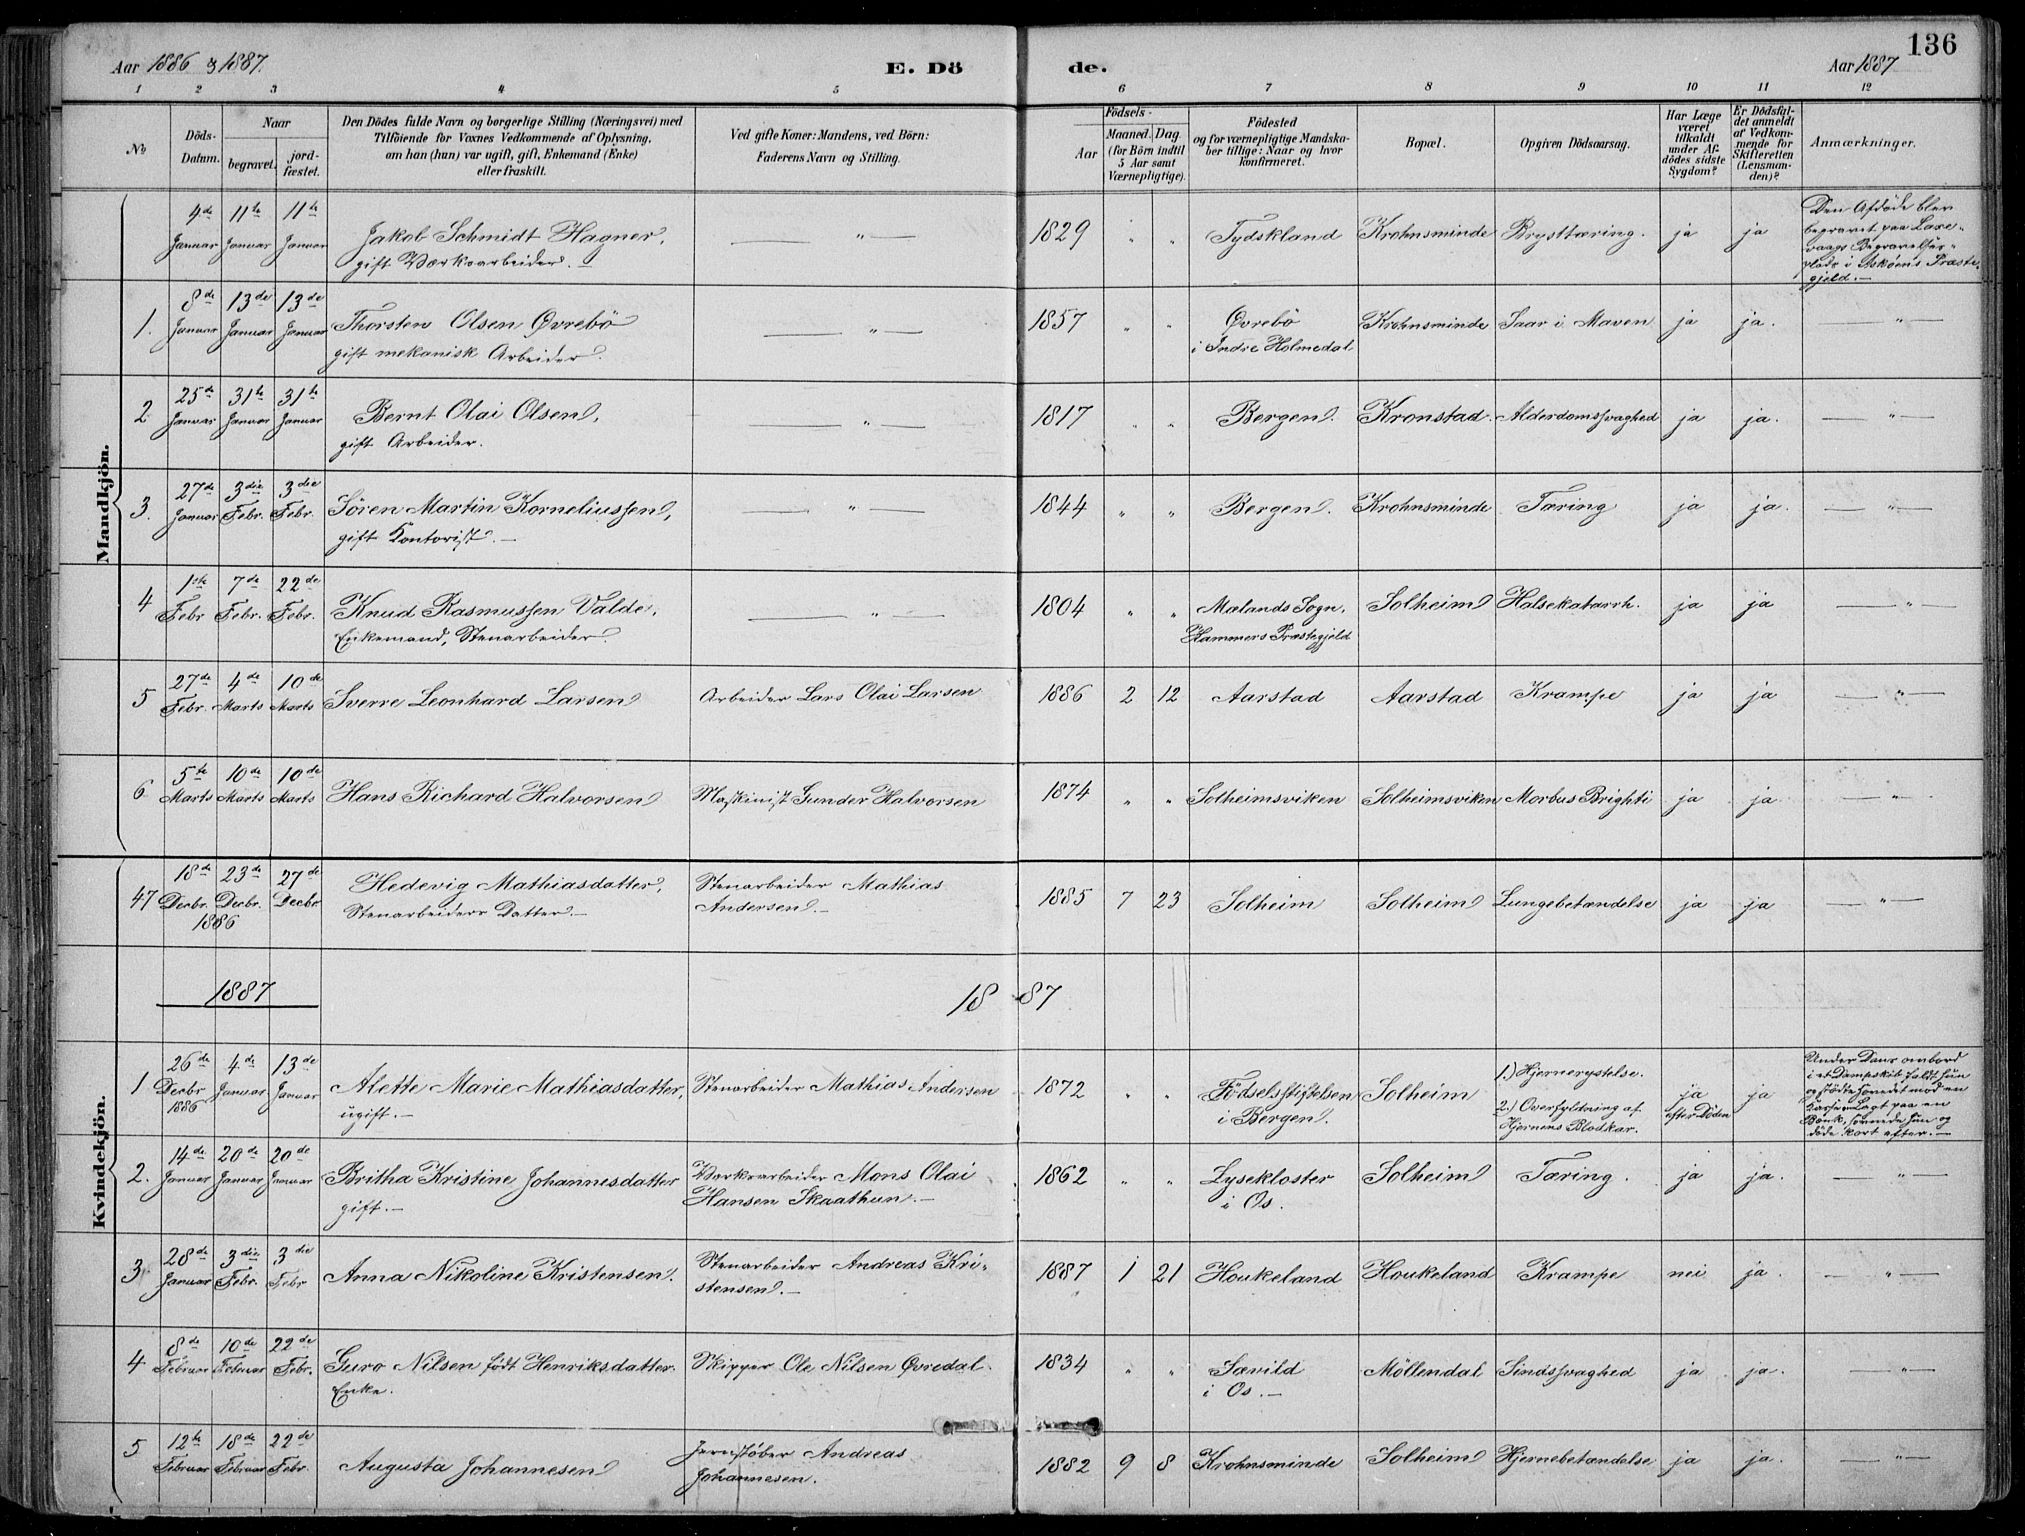 136
Aar 1886 & 1887.
E. Dö
de.
Aar 1887
1 2 3 4 5 6 7 8 9 10 11 12
No
Döds-Datum.
Naar
begravet.
jordfæstet.
Den Dödes fulde Navn og borgerlige Stilling (Næringsvei) med
Tilföiende for Voxnes Vedkommende af Oplysning,
om han (hun) var ugift, gift, Enkemand (Enke)
eller fraskilt.
Ved gifte Koner: Mandens, ved Börn:
Faderens Navn og Stilling.
Födsels-
Aar
Maaned. Dag
(for Börn indtil
5 Aar samt
Værnepligtige).
Födested
og for værnepligtige Mandska-
ber tillige: Naar og hvor
konfirmeret.
Bopæl.
Opgiven Dödsaarsag.
Har Læge
været
tilkaldt
under Af-
dödes sidste
Sygdom?
Er Dödsfal-
det anmeldt
af Vedkom-
mende for
Skifteretten
(Lensman-
den)?
Anmærkninger.
Mandkjön.
4de Januar 11te Januar 11te Januar Jakob Schmidt Hagner, — " — 1829 " " Tydskland Krohnsminde Brysttæring. ja ja Den Afdöde blev
gift Værksarbeider. —
begravet paa Laxe-
vaags Begravelses-
plads i Askøens Præste-
gjeld. —
1. 8de Januar 13de Januar 13de Januar Thorsten Olsen Øvrebö — " — 1857 " " Øvrebö Krohnsminde Saar i Maven ja ja. — " —
gift mekanisk Arbeider.
i Indre Holmedal
2 25de Januar 31te Januar 31te Januar Bernt Olai Olsen, — " — 1817 " " Bergen. Kronstad. Alderdomssvaghed ja ja. — " —
gift Arbeider.
3. 27de Januar 3die Febr. 3die Febr. Sören Martin Korneliussen, — " — 1844 " " Bergen. Krohnsminde Tæring ja ja. — " —
gift Kontorist. —
4 1ste Febr 7de Febr. 22de Febr. Knud Rasmussen Valde, — " — 1804 " " Mælands Sogn, Solheim Halsekatarrh. ja ja — " —
Enkemand, Stenarbeider
Hammers Præstegjeld
5 27de Febr. 4de Marts 10de Marts Sverre Leonhard Larsen Arbeider Lars Olai Larsen 1886 2 12 Aarstad Aarstad Krampe ja ja — " —
6 5te Marts 10de Marts 10de Marts Hans Richard Halvorsen Maskinist Gunder Halvorsen 1874 " " Solheimsviken Solheimsviken Morbus Brighti ja ja — " —
Kvindekjön.
47 18de Decbr. 1886 23de Decbr. 27de Decbr Hedevig Mathiasdatter, Stenarbeider Mathias 1885 7 23 Solheim Solheim Lungebetændelse ja ja — " —
Stenarbeiders Datter. —
Andersen. —
1887
1887
1 26de Decbr 1886 4de Januar 13de Januar Alette Marie Mathiasdatter, Stenarbeider Mathias Andersen 1872 " " Födselsstiftelsen Solheim 1.) Hjernerystelse. ja ja Under Dans ombord
ugift. —
i Bergen.
2.) Overfyldning af
Hjernens Blodkar.
efter Döden
i et Dampskib faldt hun
og stödte Hovedet mod en
Lagt paa en
Bænk, hun og
döde kort efter. —
2. 14de Januar 20de Januar 20de Januar Britha Kristine Johannesdatter Værksarbeider Mons Olai 1862 " " Lysekloster Solheim Tæring. ja ja. — " —
gift. —
Hansen Skaathun. —
i Os.
3 28de Januar 3die Febr. 3die Febr Anna Nikoline Kristensen. Stenarbeider Andreas Kri- 1887 1 21 Houkeland Houkeland Krampe nei ja. — " —
stensen. —
4 8de Februar 10de Februar 22de Febr. Guro Nilsen födt Henriksdatter. Skipper Ole Nilsen Øvredal. 1834 " " Sævild Möllendal Sindssvaghed ja ja. — " —
Enke.
i Os. —
5 12te Februar 18de Februar 22de Febr. Augusta Johannesen Jernstöber Andreas 1882 9 8 Krohnsminde Solheim Hjernebetændelse ja ja. — " —
Johannesen.